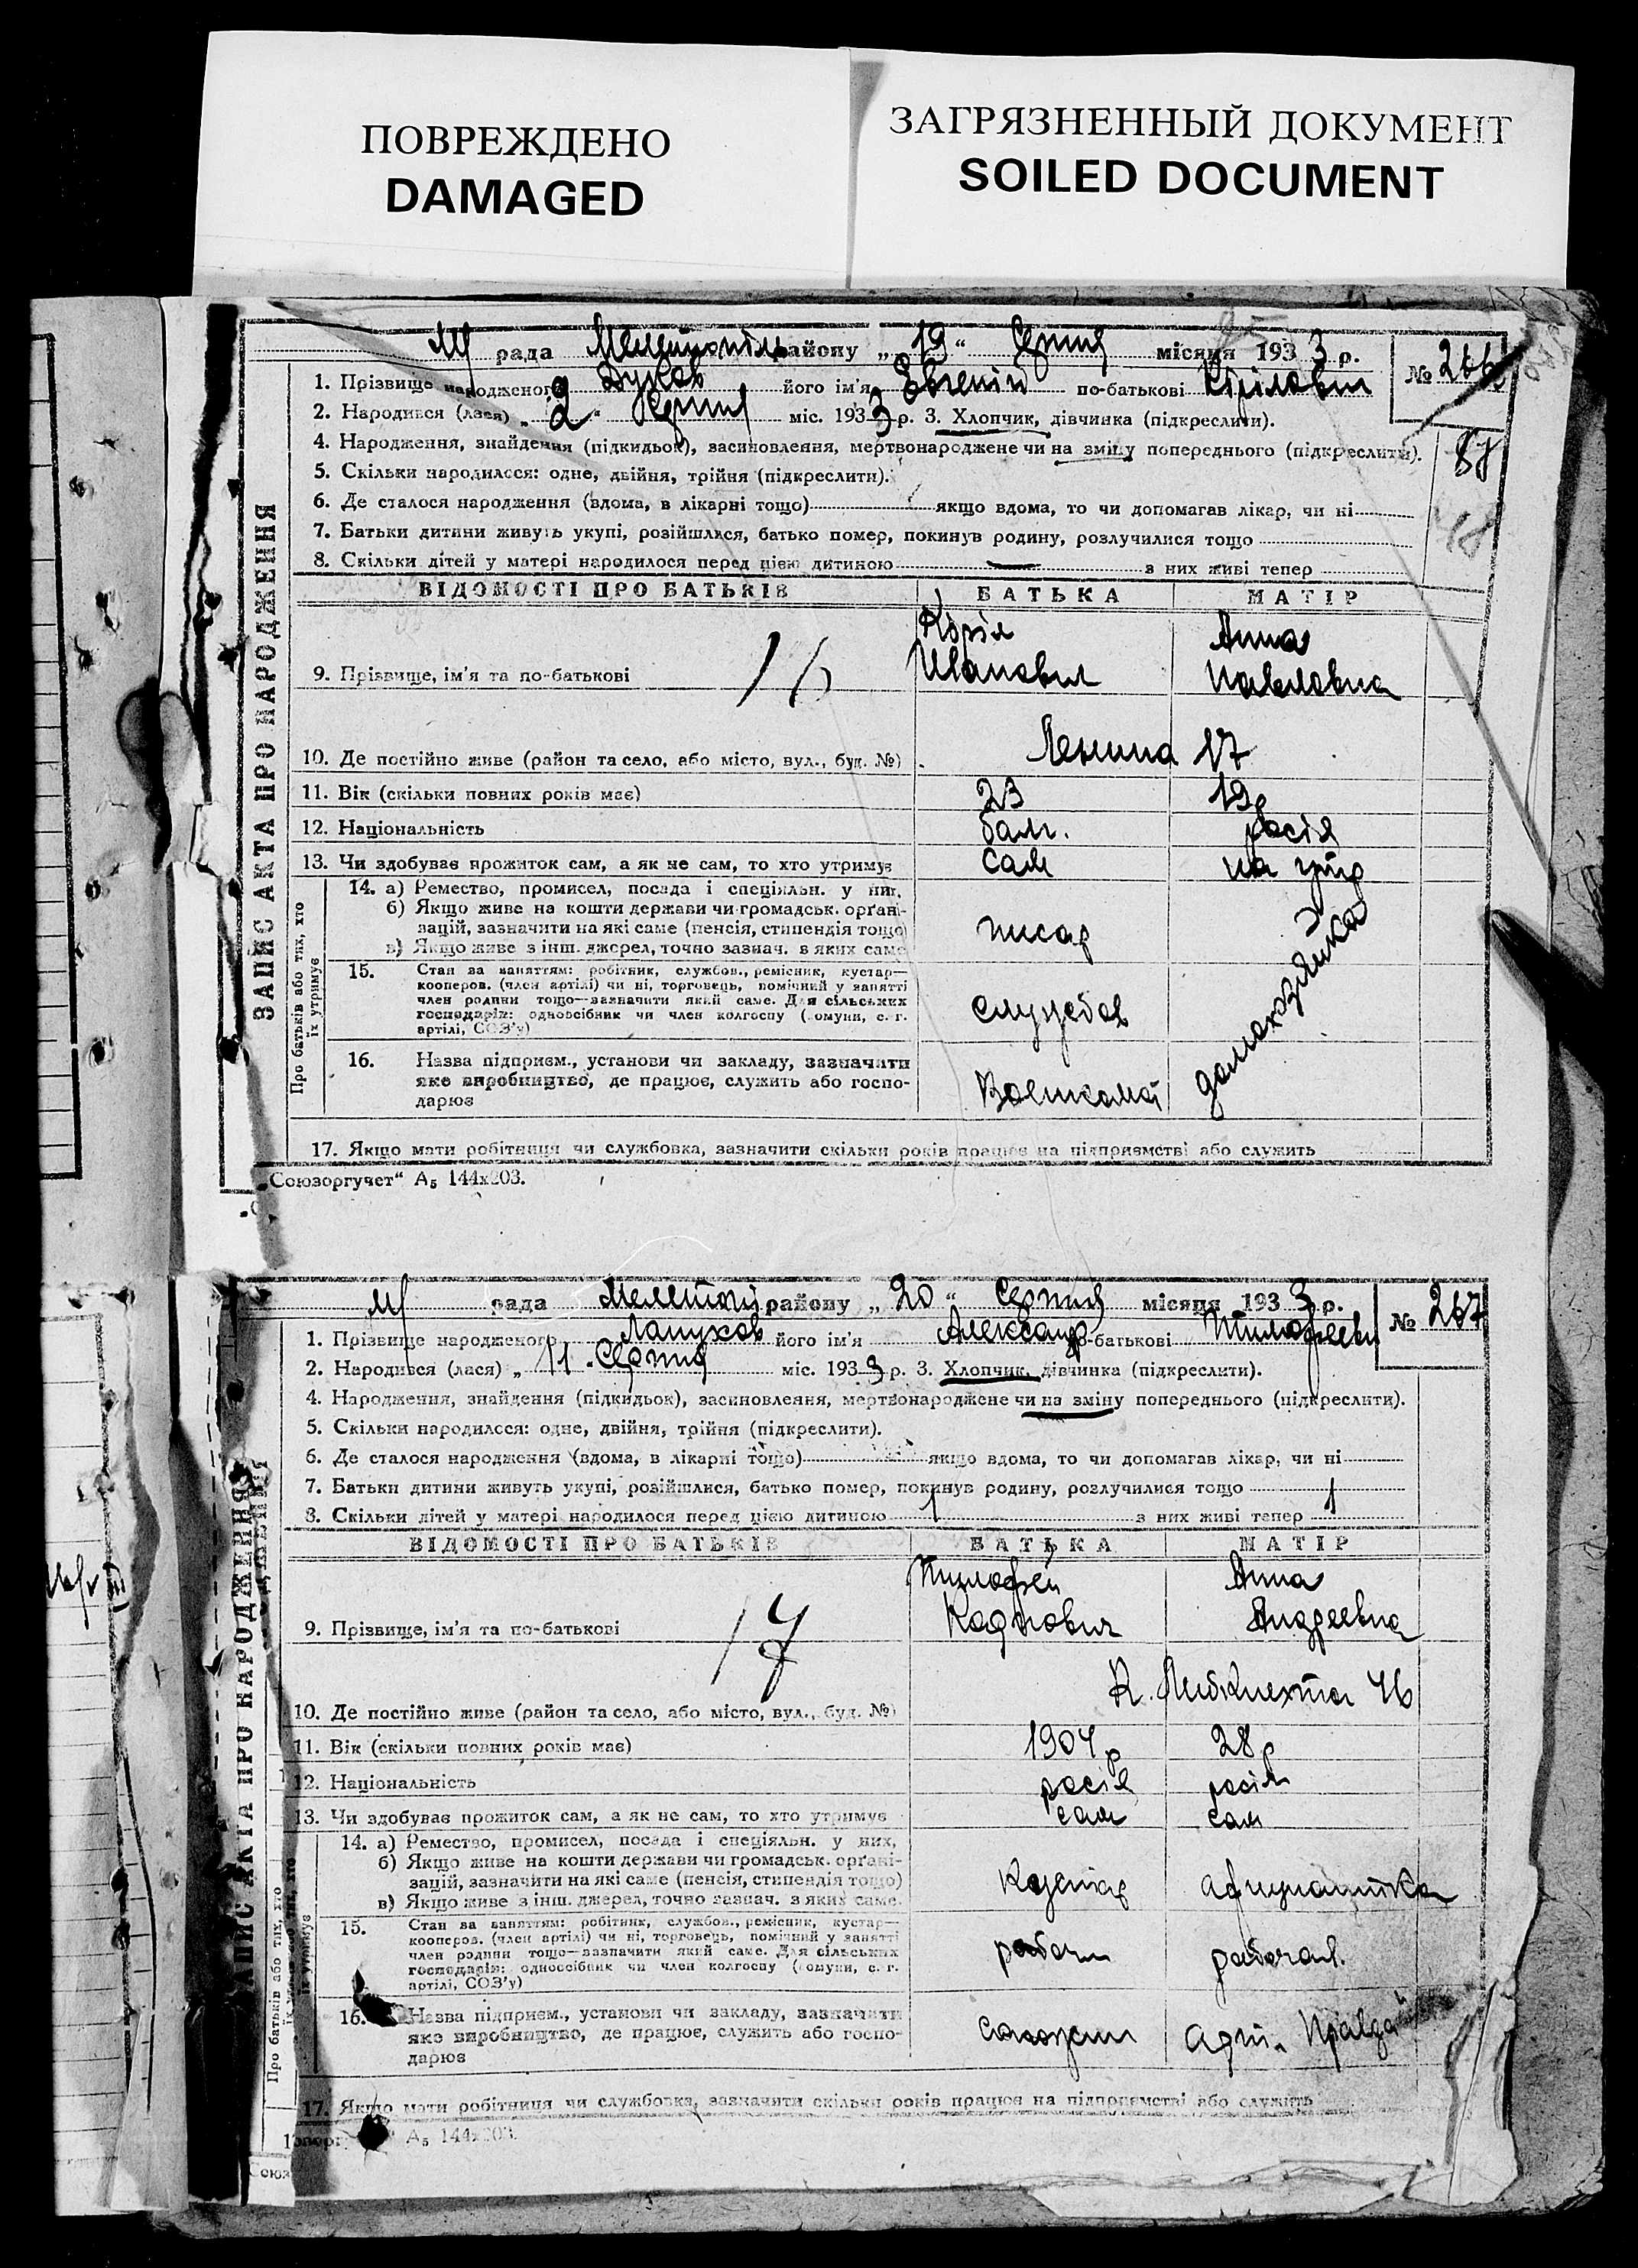 ПОВРЕЖДЕНО
DAMAGED
ЗАГРЯЗНЕННЫЙ ДОКУМЕНТ
SOILED DOCUMENT
ЗАПИС АКТА ПРО НАРОДЖЕННЯ
М рада Мелитопіль району „ 19 “ Серпня місяця 193 3 р.
№ 266
1. Прізвище народженого його ім'я Евгеній по-батькові
2. Народився (лася) „ 2 “ Серпня міс. 193 3 р. 3. Хлопчик, дівчинка (підкреслити).
4. Народження, знайдення (підкидьок), засиновлення, мертвонароджене чи на зміну попереднього (підкреслити).
5. Скільки народилося: одне, двійня, трійня (підкреслити).
6. Де сталося народження (вдома, в лікарні тощо) якщо вдома, то чи допомагав лікар, чи ні
7. Батьки дитини живуть укупі, розійшлися, батько помер, покинув родину, розлучилися тощо
8. Скільки дітей у матері народилося перед цією дитиною — з них живі тепер
ВІДОМОСТІ ПРО БАТЬКІВ БАТЬКА МАТІР
Анна
9. Прізвище, ім'я та по-батькові 16 Иванович Павловна
10. Де постійно живе (район та село, або місто, вул., буд. №) Ленина 17
11. Вік (скільки повних років має) 23 19р
12. Національність болг. росія
13. Чи здобуває прожиток сам, а як не сам, то хто утримує сам на утр
Про батьків або тих, хто їх утримує
14. а) Ремество, промисел, посада і спеціяльн. у них,
б) Якщо живе на кошти держави чи громадськ. орґані-
зацій, зазначити на які саме (пенсія, стипендія тощо)
в) Якщо живе з інш. джерел, точно зазнач. в яких саме
писар
домохозяйка
15. Стан за заняттям: робітник, службов., ремісник, кустар—
кооперов. (член артілі) чи ні, торговець, помічний у занятті
член родини тощо—зазначити який саме. Для сільських
господарів: одноосібник чи член колгоспу (комуни, с.-г.
артілі, СОЗ'у)
16. Назва підприєм., установи чи закладу, зазначити
яке виробництво, де працює, служить або госпо-
дарює
17. Якщо мати робітниця чи службовка, зазначити скільки років працює на підприємстві або служить
„Союзоргучет“ А₅ 144х203.
ЗАПИС АКТА ПРО НАРОДЖЕННЯ
М рада Мелитопіл району „ 20 “ Серпня місяця 193 3 р.
№ 267
1. Прізвище народженого Лапухов його ім'я Александр по-батькові
2. Народився (лася) „ 11 “ Серпня міс. 193 3 р. 3. Хлопчик, дівчинка (підкреслити).
4. Народження, знайдення (підкидьок), засиновлення, мертвонароджене чи на зміну попереднього (підкреслити).
5. Скільки народилося: одне, двійня, трійня (підкреслити).
6. Де сталося народження (вдома, в лікарні тощо) якщо вдома, то чи допомагав лікар, чи ні
7. Батьки дитини живуть укупі, розійшлися, батько помер, покинув родину, розлучилися тощо
8. Скільки дітей у матері народилося перед цією дитиною 1 з них живі тепер 1
ВІДОМОСТІ ПРО БАТЬКІВ БАТЬКА МАТІР
Тимофей Анна
9. Прізвище, ім'я та по-батькові 17 Андреевна
10. Де постійно живе (район та село, або місто, вул., буд. №) К. Либкнехта 46
11. Вік (скільки повних років має) 1904р 28р
12. Національність росія росія
13. Чи здобуває прожиток сам, а як не сам, то хто утримує сам сам
Про батьків або тих, хто їх утримує
14. а) Ремество, промисел, посада і спеціяльн. у них,
б) Якщо живе на кошти держави чи громадськ. орґані-
зацій, зазначити на які саме (пенсія, стипендія тощо)
в) Якщо живе з інш. джерел, точно зазнач. з яких саме.
15. Стан за заняттям: робітник, службов., ремісник, кустар—
кооперов. (член артілі) чи ні, торговець, помічний у занятті
член родини тощо—зазначити який саме. Для сільських
господарів: одноосібник чи член колгоспу (комуни, с. г.
артілі, СОЗ'у)
рабочи рабочая
16. Назва підприєм., установи чи закладу, зазначити
яке виробництво, де працює, служить або госпо-
дарює
Правда
17. Якщо мати робітниця чи службовка, зазначити скільки років працює на підприємстві або служить
А₅ 144х203.